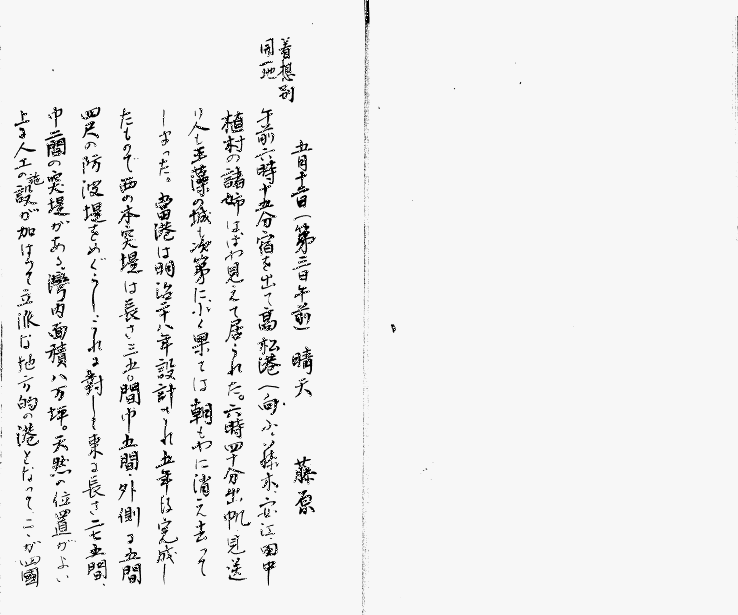 着想別
同地
五月十二日(第三日午前) 晴天 藤原
午前六時十五分宿を出て高松港へ向ふ、藤京、安江、田中
植村の諸姉はばわ見えて居られた。六時四十分出帆見送
り人も玉藻の城も次第に小く果ては朝もやに消え去って
しまった。当港は明治卅八年設計され五年後完成し
たもので西の本突堤は長さ三五〇間巾五間、外側る五間
四尺の防波堤をめぐらしこれに対して東は長さ二七五間、
巾二間の突堤がある湾内面積八万坪。天然の位置がよい
上に人工の施設が加はって立派な地方的の港となってこゝが四国